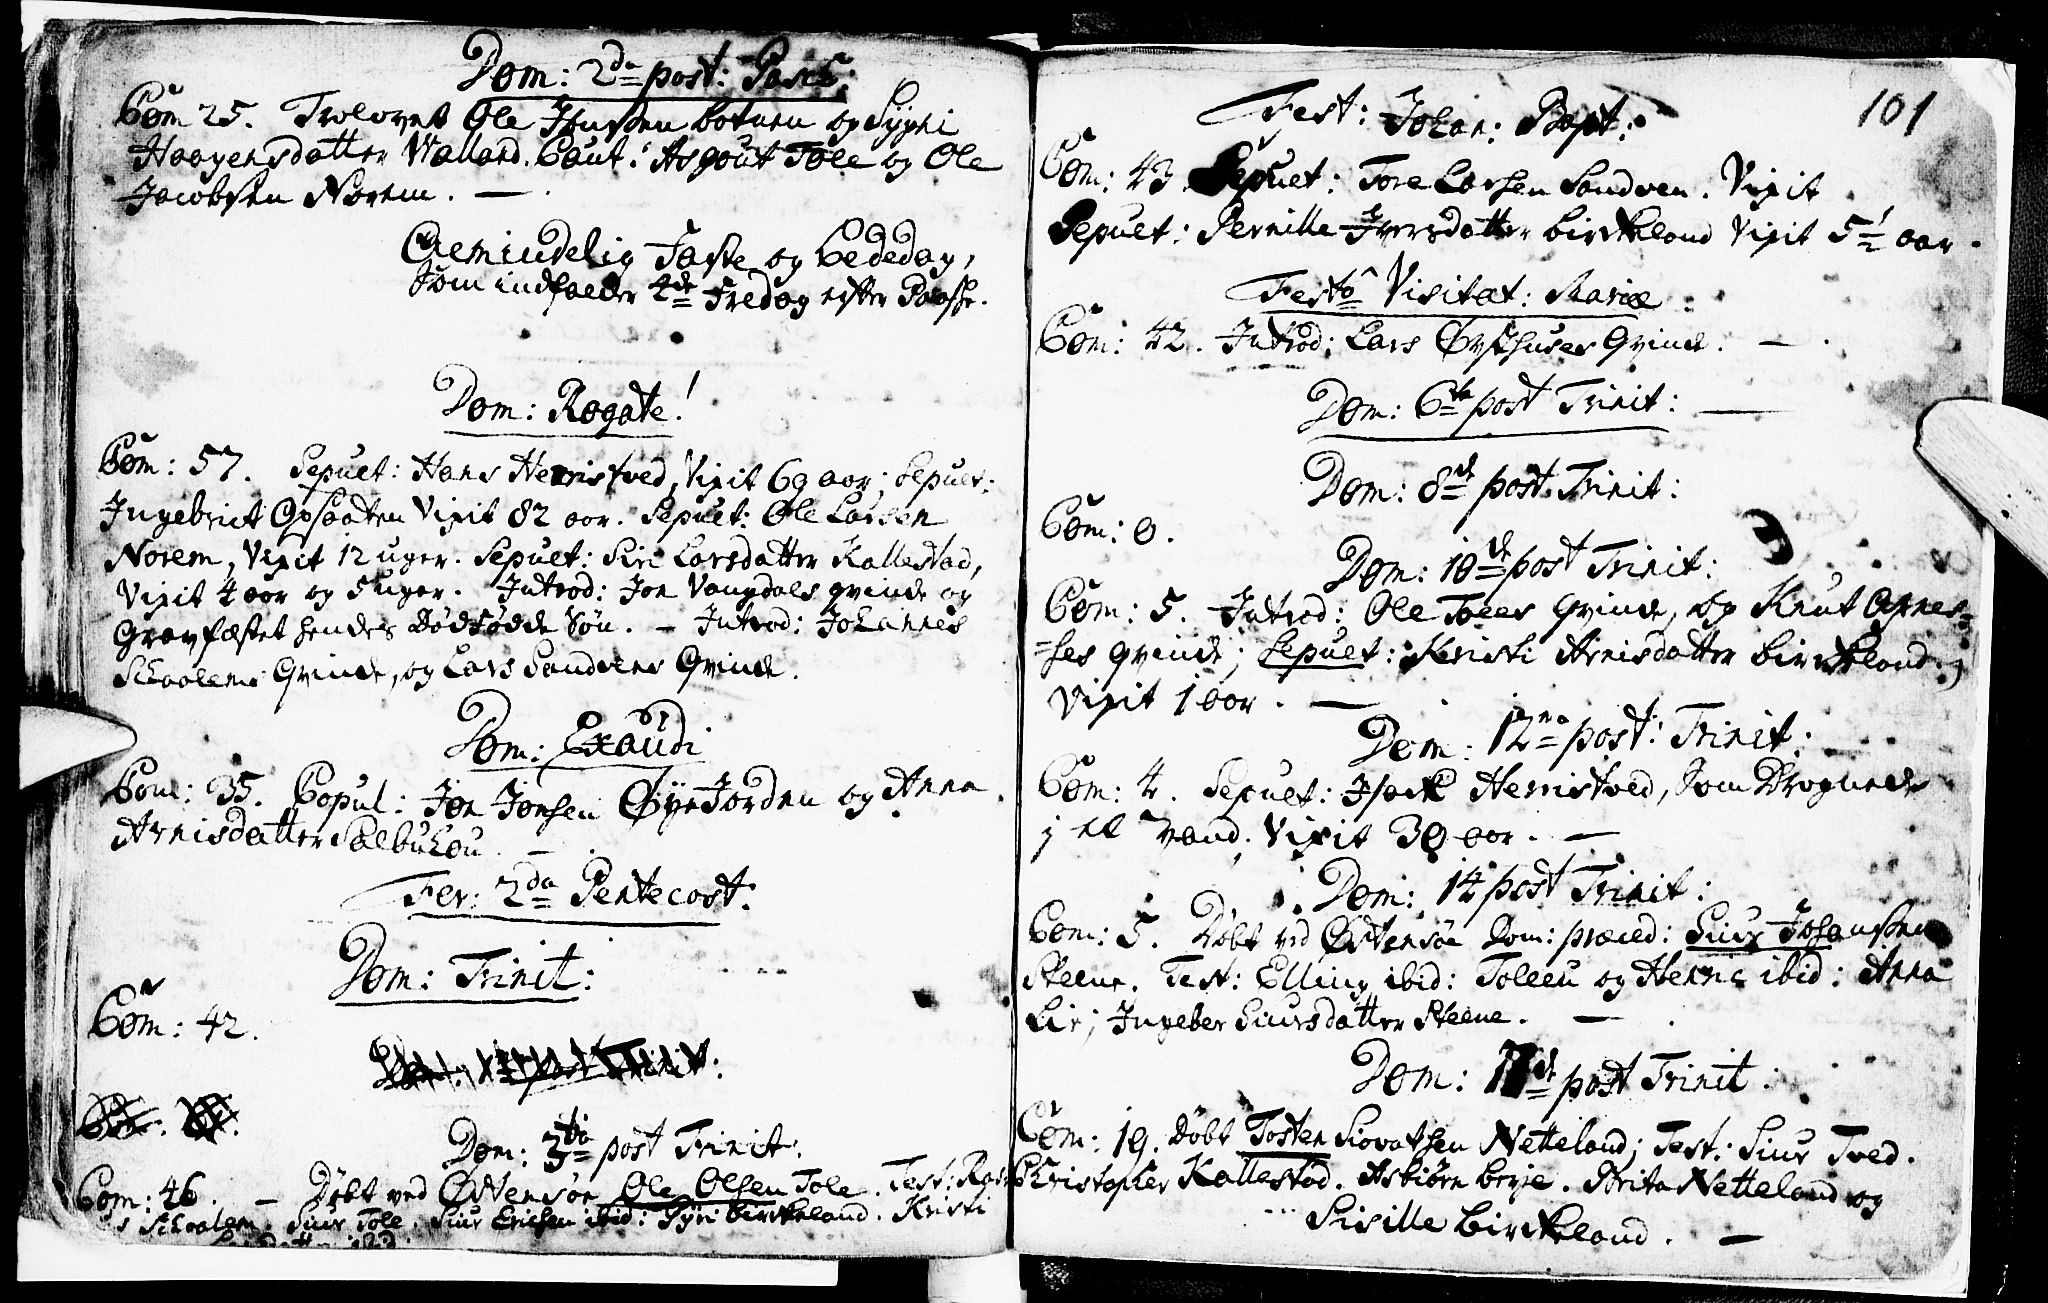 Dom: 2da post: Pasch:
Com 25. Trolovet Ole Jonsen botnen og Sygni
Haagensdatter Walland. Caut: Asgout Tole og Ole
Jacobsen Norem. —
Almindelig Faste og bededag,
som indfalder 4de Fredag efter Paaske.
Dom: Rogate!
Com: 57. Sepult: Hans Herristved, Vixit 69 aar; Sepult:
Ingebrict Vixit 82 aar. Sepult: Ole Larsen
Norem, Vixit 12 uger. Sepult: Siri Larsdatter Kallestad,
Vixit 4 aar og 5 uger. Introd: Jon Vangdals qvinde og
Gravfæstet hendes Dødfødde Søn. — Introd: Johannes
Schaalens Qvinde, og Lars Sandvens Qvinde.
Dom: Exaudi
Com: 35. Copul: Jon Jonsen Øyejorden og Anna
Arnisdatter Salbuhou. —
Fer: 2da Pentecost:
Dom: Trinit:
Com: 42.
Dom: 3tia post Trinit:
Com: 46. — Døbt ved Østensøe Ole Olsen Tole. Test:
Schaalen. Siur Tole. Siur Erichsen ibid: Gyri birkeland. Kristi
101
Fest: Johan: Bapt:
Com: 43. Sepult: Tore Larsen Sandven. Vixit
Sepult: Pernille Iversdatter birkeland Vixit 5½ aar.
Festo Visitat: Mariæ
Com: 42. Introd: Lars Øysthuses Qvinde. —
Dom: 6ta post Trinit: —
Dom: 8de post Trinit:
Com: 0.
Dom: 10de post Trinit:
Com: 5. Introd: Ole Toles Qvinde, og Knut Axnes=
=ses qvinde; Sepult: Kristi Arnisdatter birkeland,
Vixit 1 aar. —
Dom: 12ma post: Trinit:
Com: 4. Sepult: Isack Herristved, som Drognede
j et vand. Vixit 39 aar. —
Dom: 14 post Trinit:
Com: 5. Døbt ved Østensøe Dom: præced: Siur Johansen
Steene. Test: Elling ibid: Toleeu og Henne ibid: Anna
Lie; Ingeber Siursdatter Steene. —
Dom: 17de post Trinit:
Com: 19. Døbt Tosten Siovatsen Netteland; Test: Siur Tved.
Christopher Kallestad. Asbiørn berje. Brita Netteland og
Sisille birkeland. —